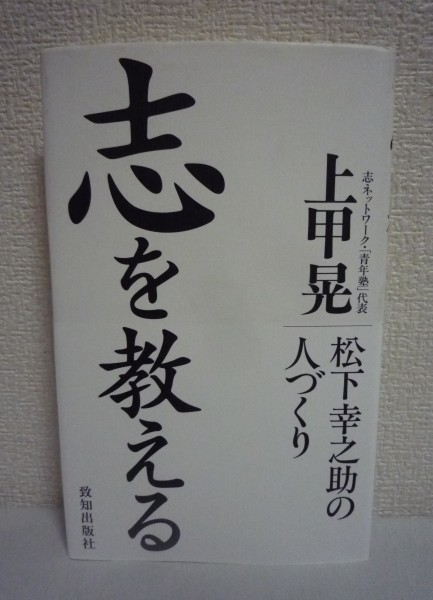 志ネットワーク・「青年塾」代表
上甲晃
松下幸之助の
人づくり
志を教える
致知出版社